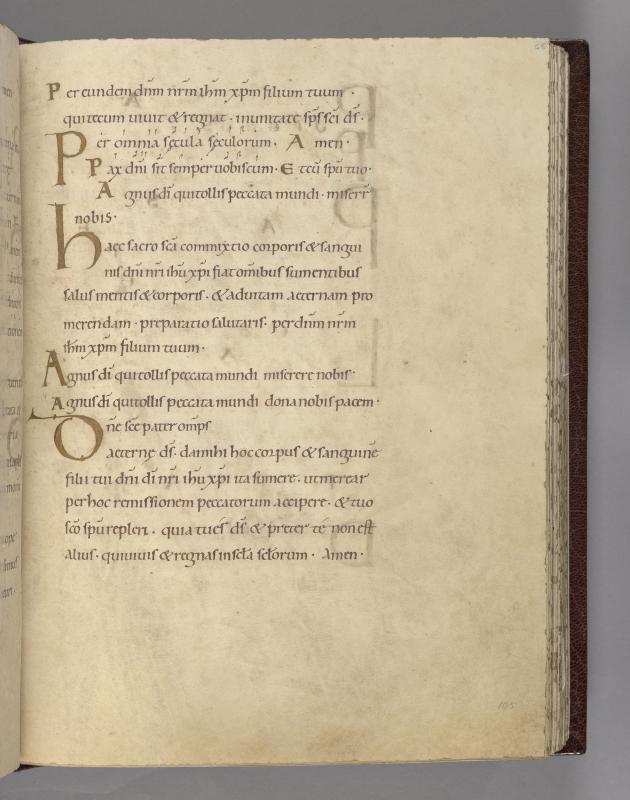 Per eundem dn̄m nr̄m ih̄m xp̄m filium tuum ·
qui tecum uiuit & regnat · in unitate sp̄s sc̄i ds̄ ·
Per omnia sęcula sęculorum · Amen ·
Pax dn̄i sit semper uobiscum · Et cū sp̄u tuo ·
Agnus dī qui tollis peccata mundi · miserr̄
nobis ·
haec sacro sc̄a commixtio corporis & sangui
nis dn̄i nr̄i ih̄u xp̄i fiat omībus sumentibus
salus mentis & corporis · & ad uitam aeternam pro
merendam · preparatio salutaris · per dn̄m nr̄m
ih̄m xp̄m filium tuum ·
Agnus dī qui tollis peccata mundi miserere nobis ·
Agnus dī qui tollis peccata mundi dona nobis pacem ·
Dn̄e sc̄e pater omp̄s
aeterne ds̄ · da mihi hoc corpus & sanguinē
filii tui dn̄i dī nr̄i ih̄u xp̄i ita sumere · ut merear
per hoc remissionem peccatorum accipere · & tuo
sc̄o sp̄u repleri · quia tu es ds̄ & preter te non est
alius · qui uiuis & regnas in sc̄la sc̄lorum · Amen ·
105